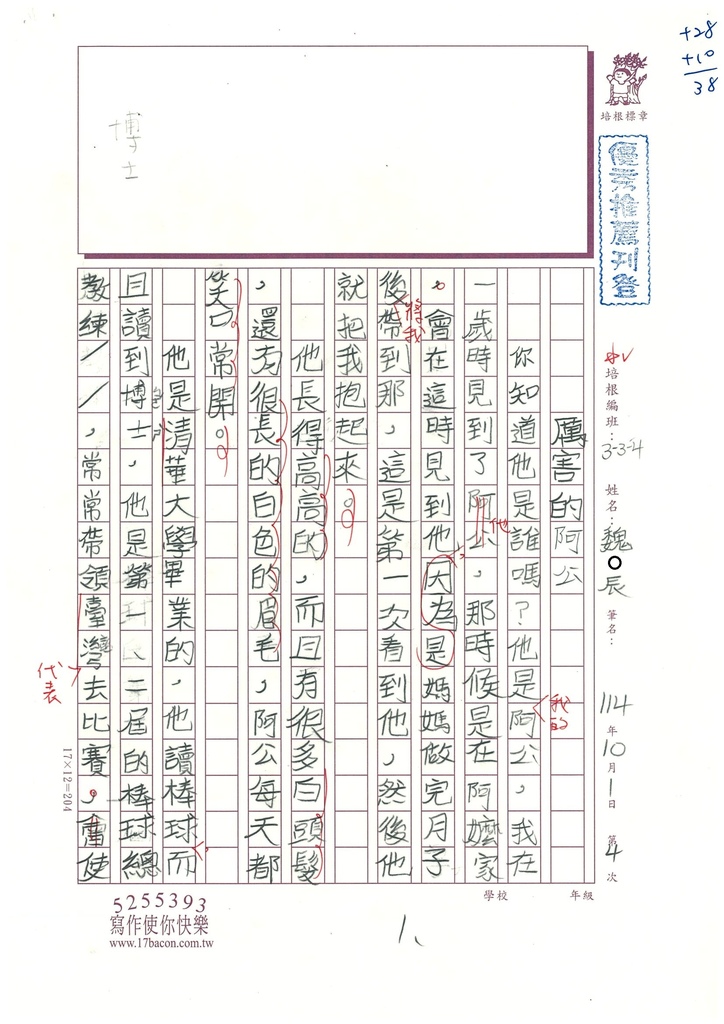 +28
+10
38
培根標章
優秀推薦刊登
培根編班：3-3-4 姓名：魏○辰 筆名：
114年10月1日 第4次
學校 年級
博士
厲害的阿公
你知道他是誰嗎？他是阿公，我在
我的
一歲時見到了阿公，那時候是在阿嬤家
他
。會在這時見到他因為是媽媽做完月子
後帶到那，這是第一次看到他，然後他
將我
就把我抱起來。
他長得高高的，而且有很多白頭髮
，還有很長的白色的眉毛，阿公每天都
笑口常開。
他是清華大學畢業的，他讀棒球而
且讀到博士，他是第一、二屆的棒球總
教練，常常帶領臺灣去比賽。會使
代表
17×12=204
5255393
寫作使你快樂
www.17bacon.com.tw
1、